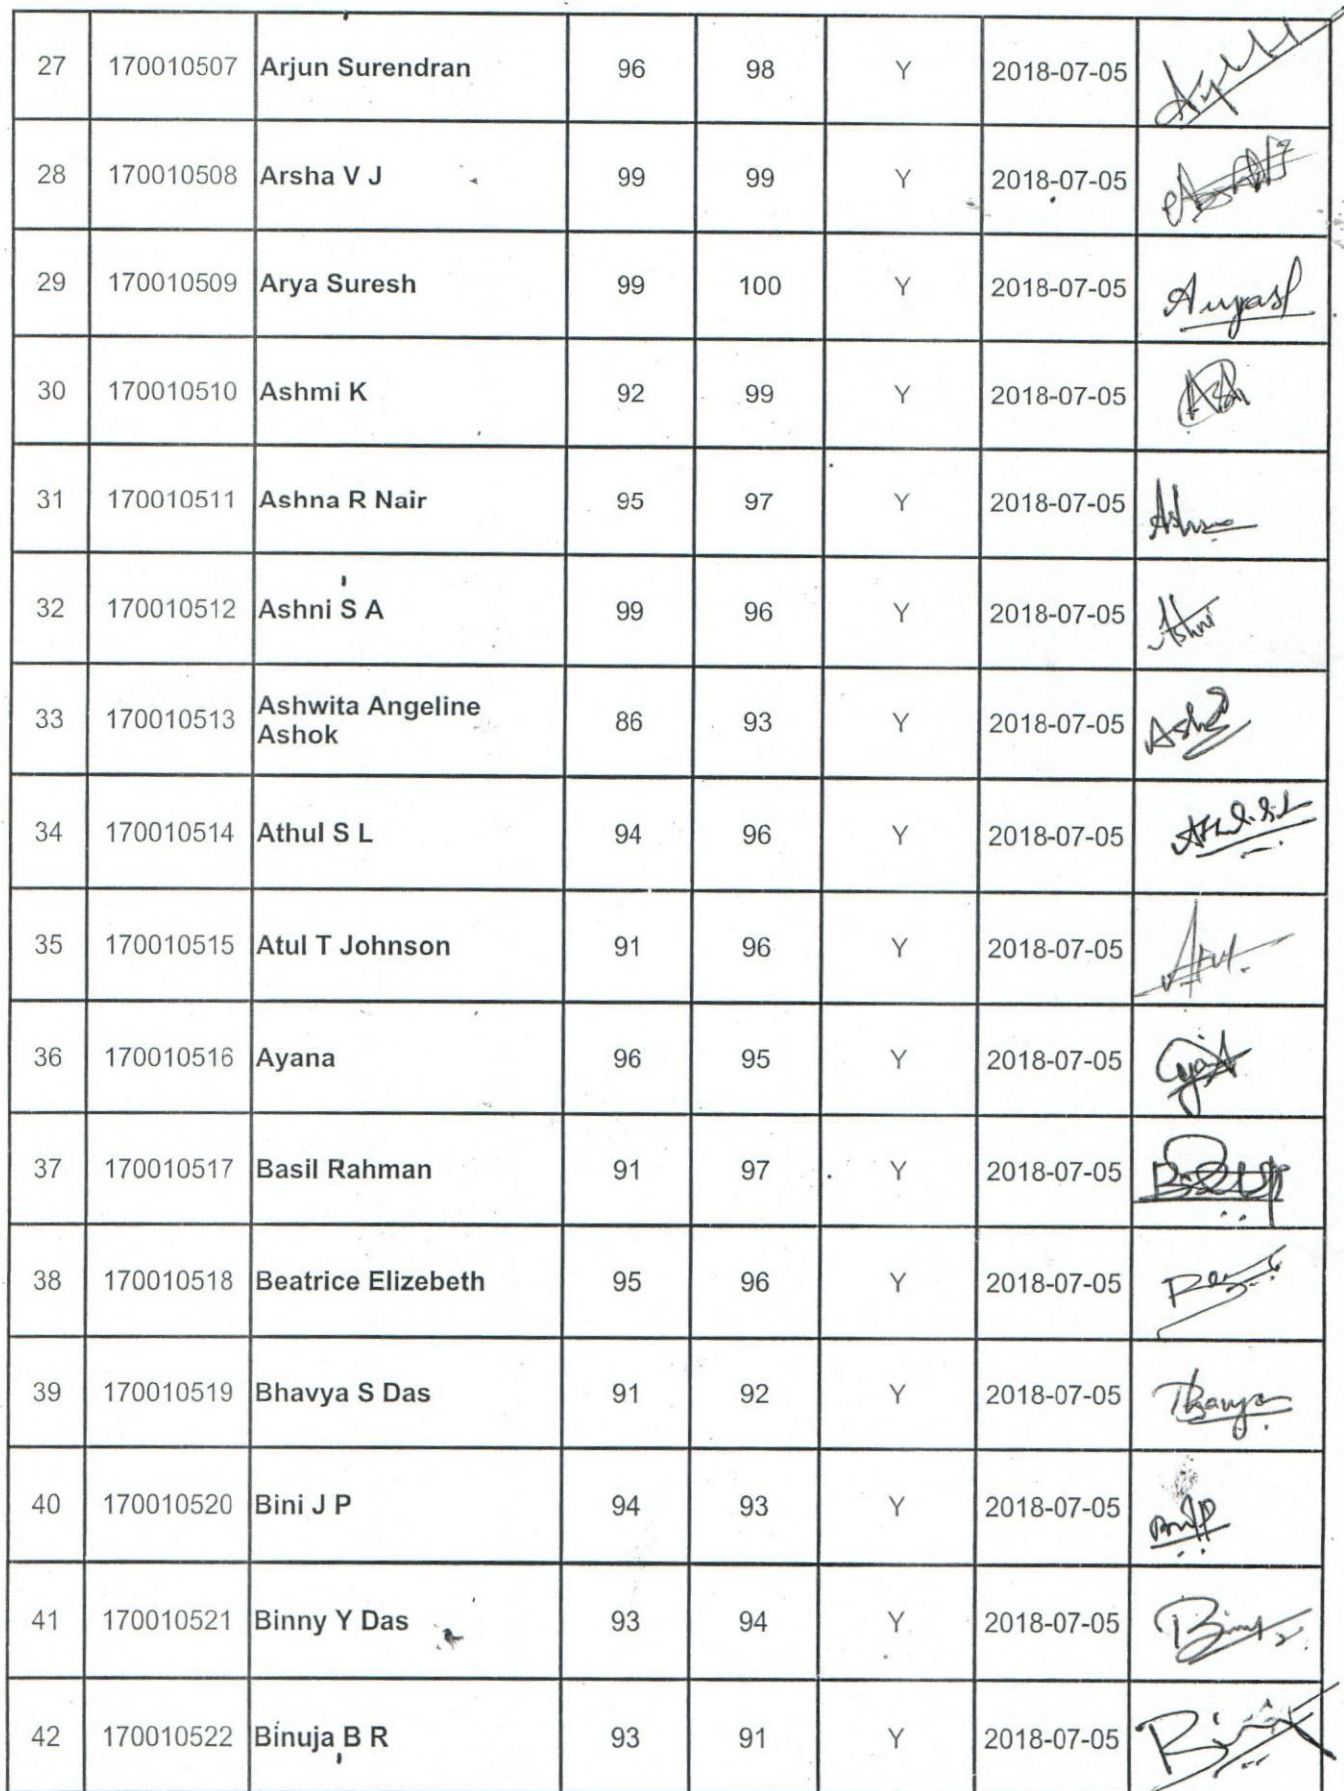 27 170010507 Arjun Surendran 96 98 Y 2018-07-05
28 170010508 Arsha V J 99 99 Y 2018-07-05
29 170010509 Arya Suresh 99 100 Y 2018-07-05
30 170010510 Ashmi K 92 99 Y 2018-07-05
31 170010511 Ashna R Nair 95 97 Y 2018-07-05
32 170010512 Ashni S A 99 96 Y 2018-07-05 Ashni
33 170010513 Ashwita Angeline
Ashok 86 93 Y 2018-07-05
34 170010514 Athul S L 94 96 Y 2018-07-05
35 170010515 Atul T Johnson 91 96 Y 2018-07-05
36 170010516 Ayana 96 95 Y 2018-07-05
37 170010517 Basil Rahman 91 97 Y 2018-07-05
38 170010518 Beatrice Elizebeth 95 96 Y 2018-07-05
39 170010519 Bhavya S Das 91 92 Y 2018-07-05
40 170010520 Bini J P 94 93 Y 2018-07-05
41 170010521 Binny Y Das 93 94 Y 2018-07-05
42 170010522 Binuja B R 93 91 Y 2018-07-05